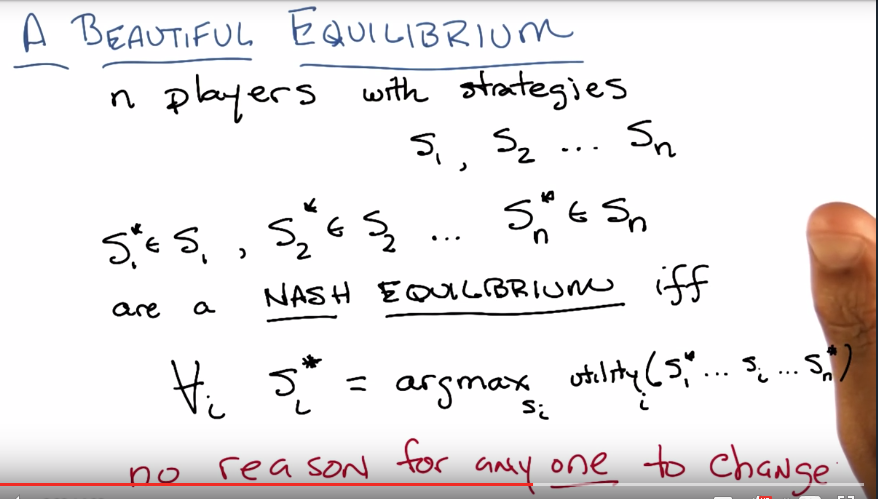 A BEAUTIFUL EQUILIBRIUM
n players with strategies
S₁, S₂ ... Sₙ
S₁* ∈ S₁, S₂* ∈ S₂ ... Sₙ* ∈ Sₙ
are a NASH EQUILBRIUM iff
∀ᵢ Sᵢ* = argmax_{sᵢ} utilityᵢ(S₁* ... sᵢ ... Sₙ*)
no reason for any one to change